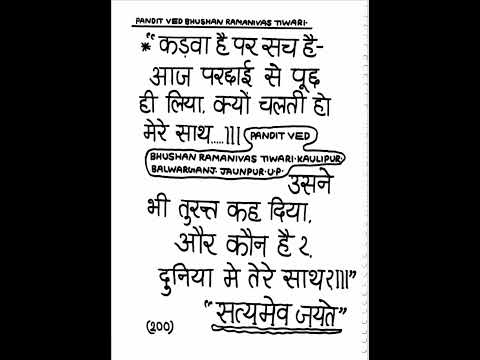 PANDIT VED BHUSHAN RAMANIVAS TIWARI.
*“कड़वा है पर सच है-
आज परछाई से पूछ
ही लिया, क्यों चलती हो
मेरे साथ.....।।। PANDIT VED
BHUSHAN RAMANIVAS TIWARI. KAULIPUR.
BALWARGANJ. JAUNPUR. U.P. उसने
भी तुरन्त कह दिया,
और कौन है ?,
दुनिया मे तेरे साथ?।।।”
“सत्यमेव जयते”
(200)